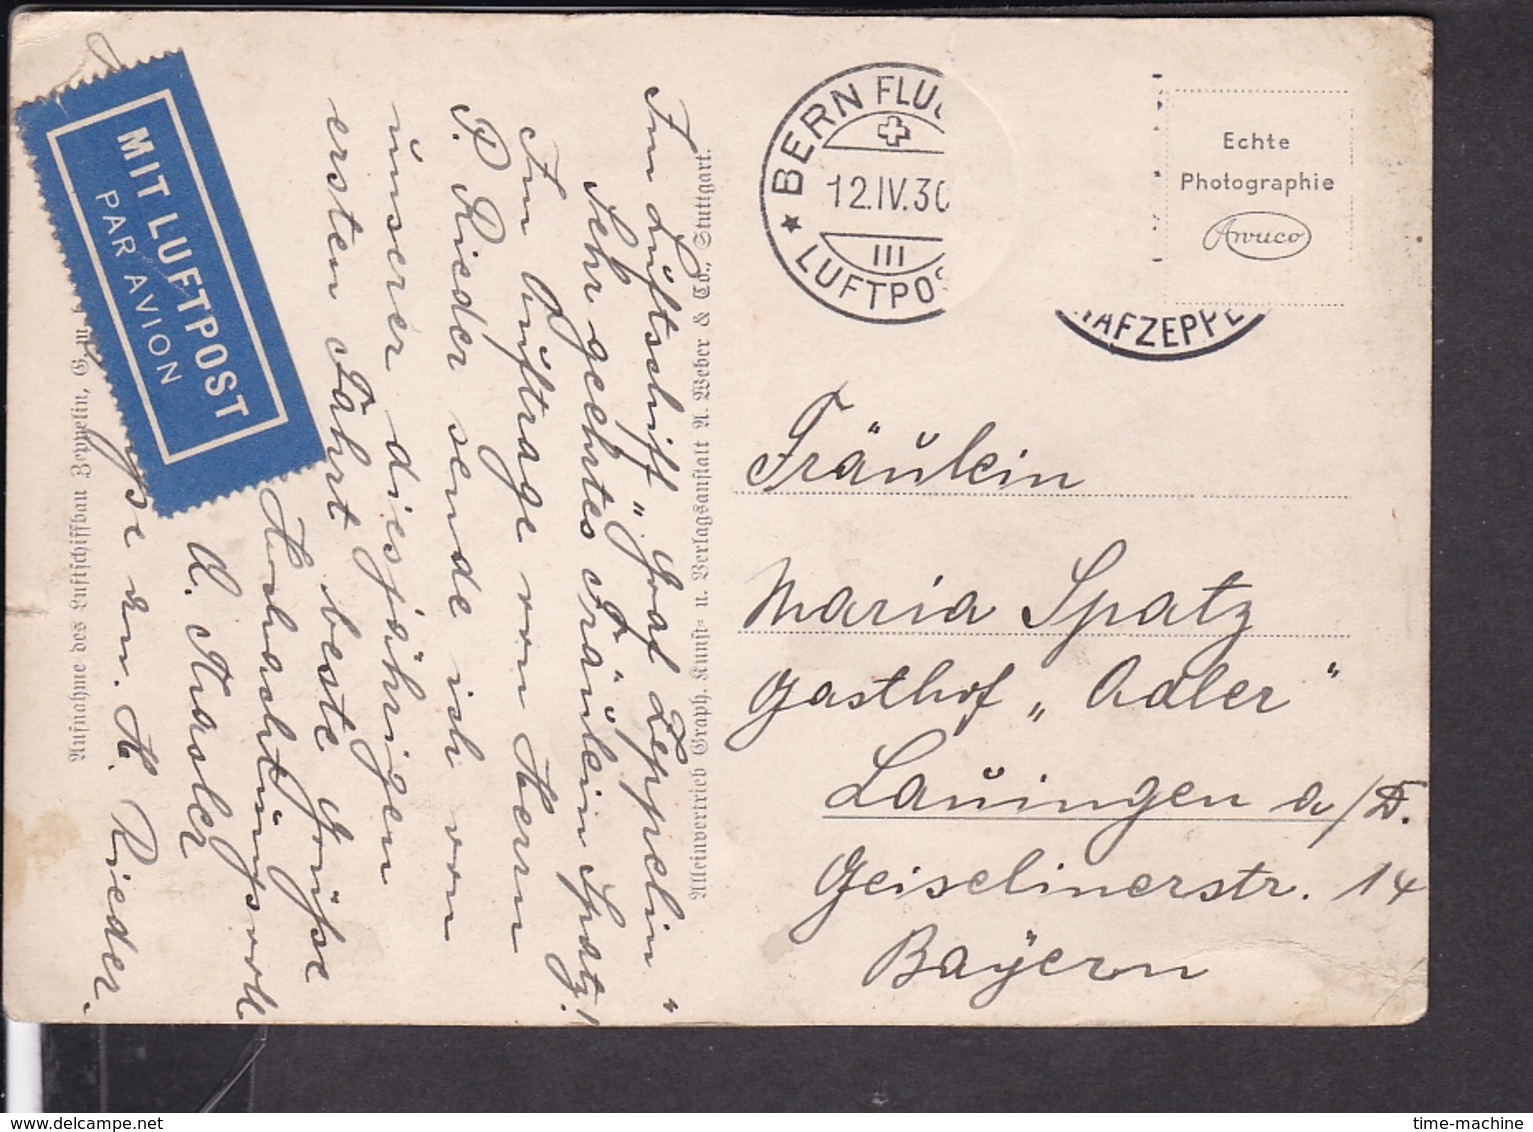 MIT LUFTPOST
PAR AVION
Im Luftschiff „Graf Zeppelin“
Sehr geehrtes Fräulein Spatz!
Im Auftrage von Herrn
P. Rieder sende ich von
unserer diesjährigen
ersten Fahrt beste Grüße
Hochachtungsvoll
A. Rieder.
Alleinvertrieb Graph. Kunst= u. Verlagsanstalt A. Weber & Co., Stuttgart.
Aufnahme des Luftschiffbau Zeppelin, G. m.
BERN FLUG
12.IV.30
III
LUFTPOS
AFZEPPE
Echte
Photographie
Fräulein
Maria Spatz
Gasthof „Adler“
Lauingen a/D.
Geiselinerstr. 14
Bayern
time-machine